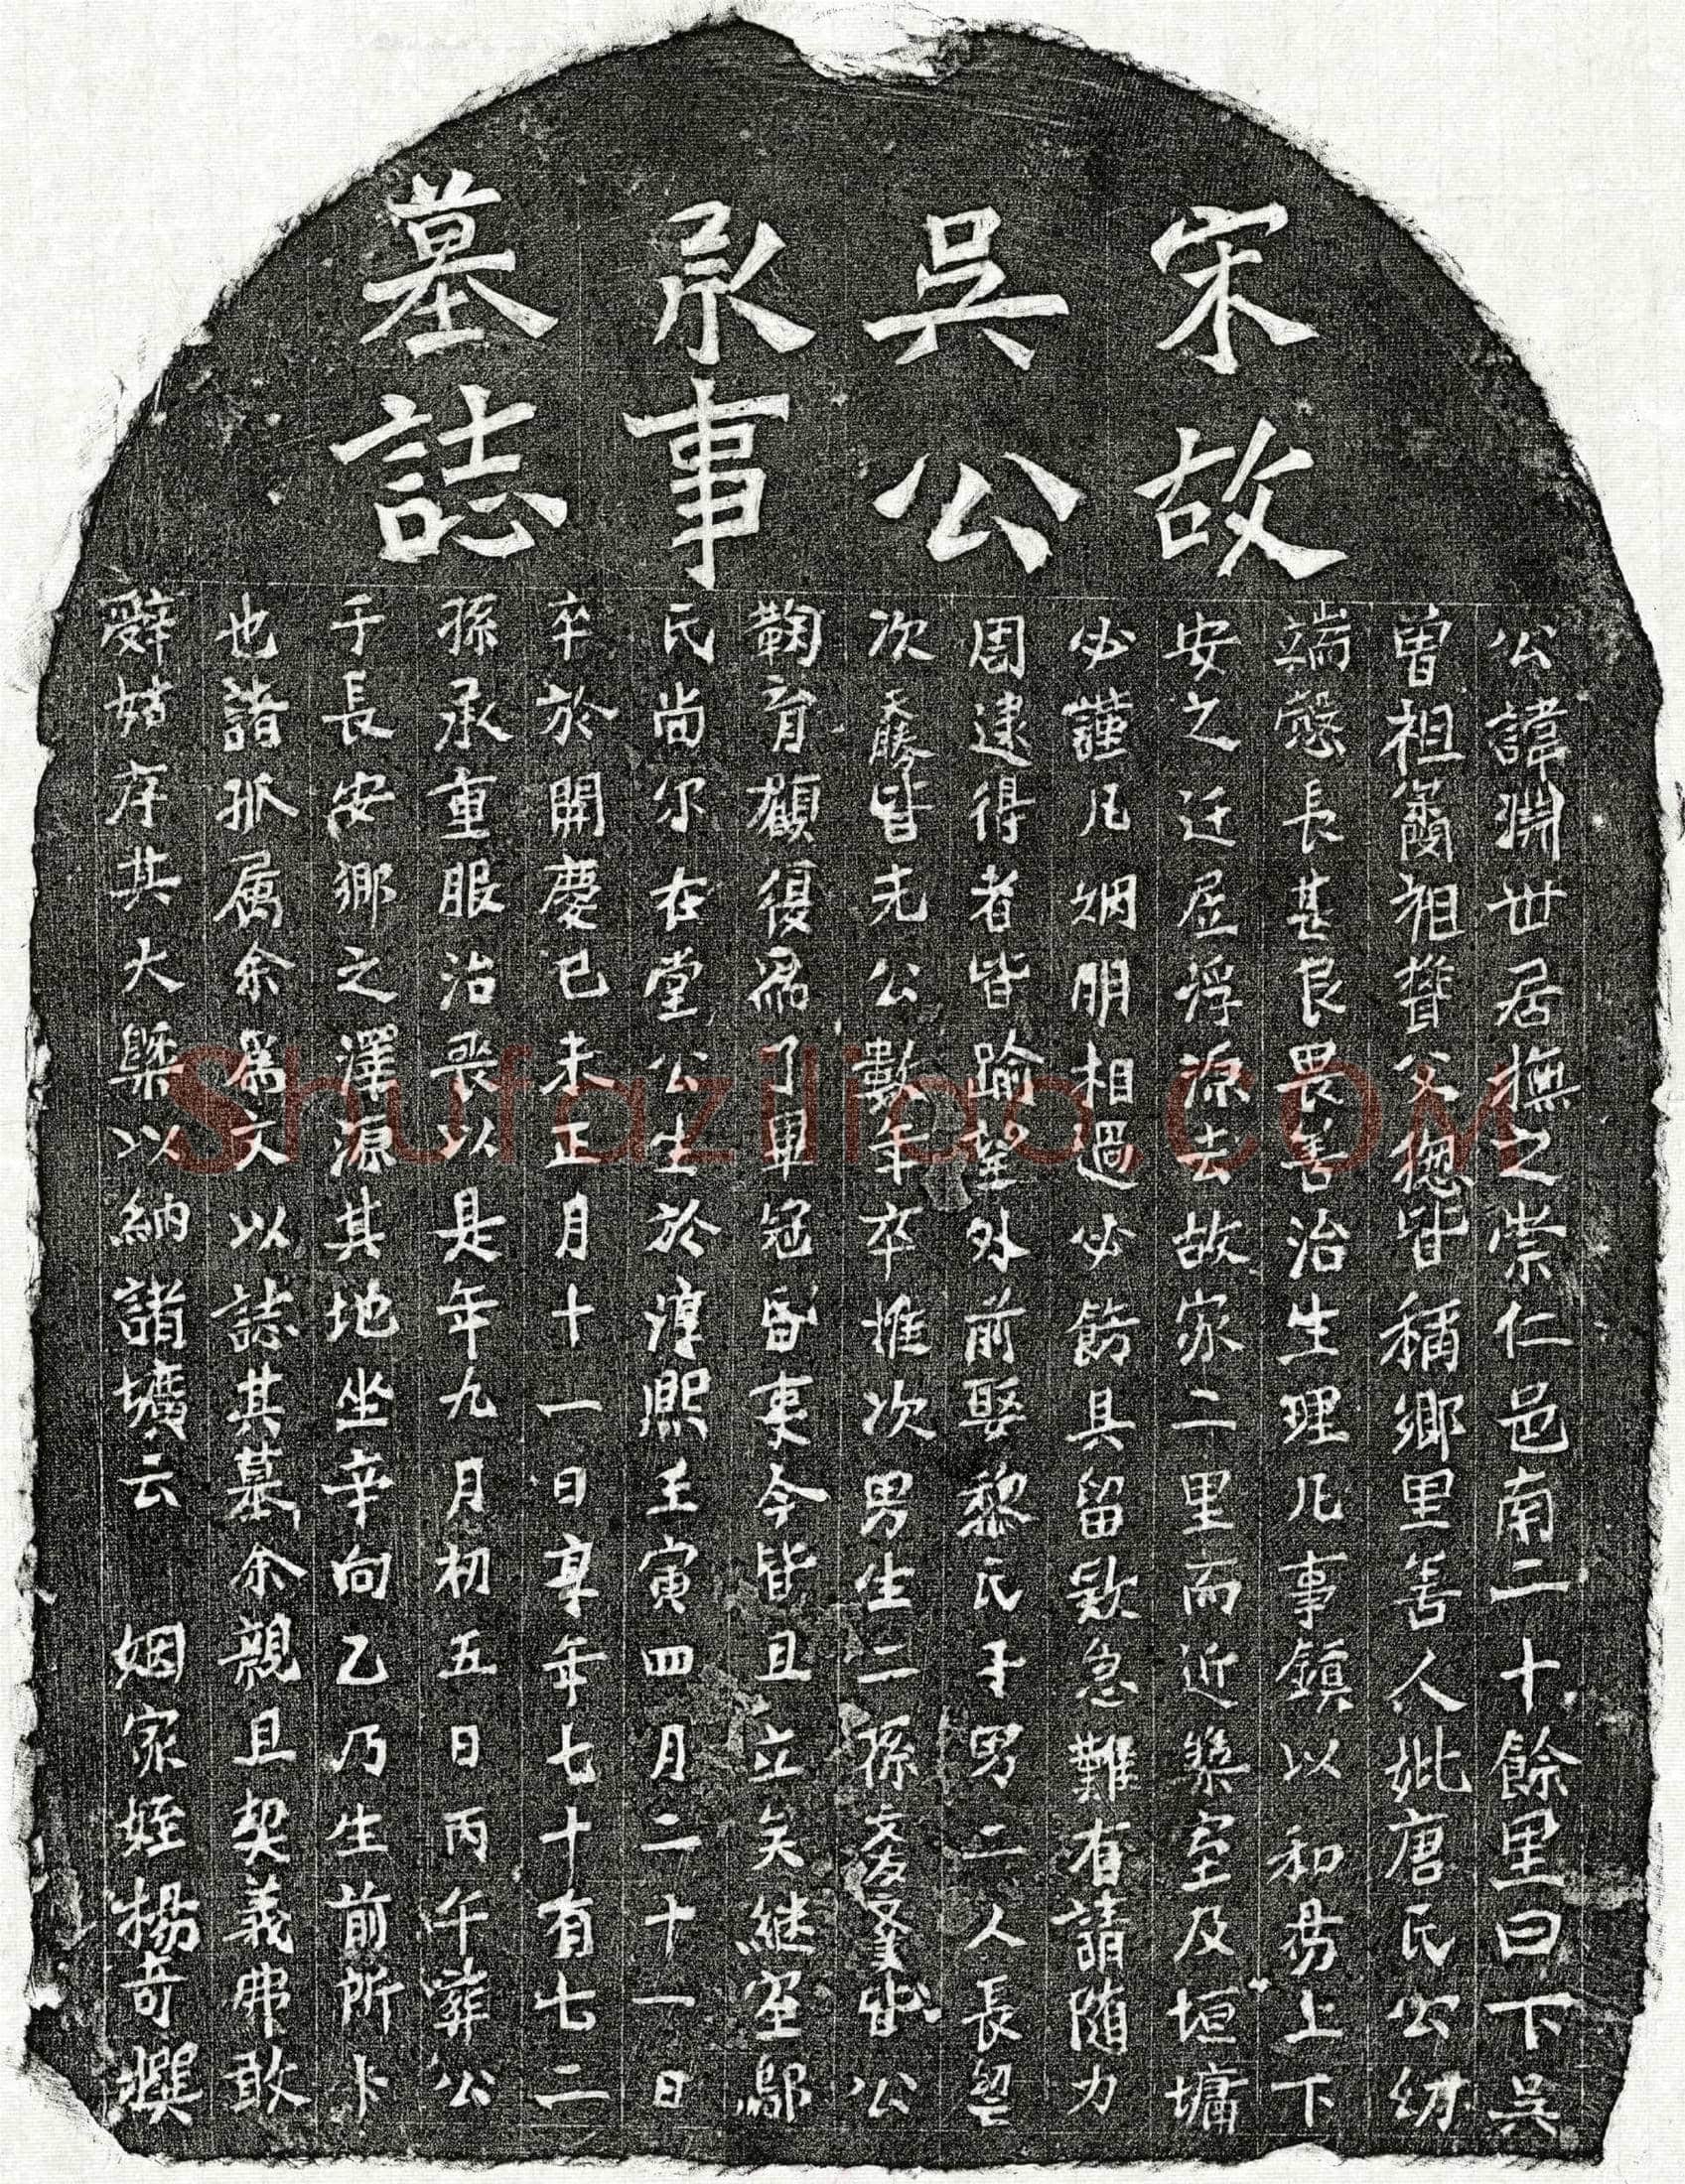 宋故
吳公
承事
墓誌
公諱淵世居撫之崇仁邑南二十餘里曰下吳
曾祖富祖贊父聰皆稱鄉里善人妣唐氏公幼
端慤長甚良畏善治生理凡事鎮以和易上下
安之迁居浮源去故家二里而近築室及垣墉
必謹凡姻朋相過必飭具留欵急難有請随力
周逮得者皆踰望外前娶黎氏子男二人長
次天勝皆先公數年卒惟次男生二孫文彥文皆公
鞠育顧復為了畢冠昏事今皆且立矣継室鄔
氏尚尔在堂公生於淳熙壬寅四月二十一日
卒於開慶己未正月十一日享年七十有七二
孫承重服治喪以是年九月初五日丙午葬公
于長安鄉之澤源其地坐辛向乙乃生前所卜
也諸孤属余為文以誌其墓余親且契義弗敢
辭姑序其大槩以納諸壙云 姻家姪楊奇撰
shufaziliao.com